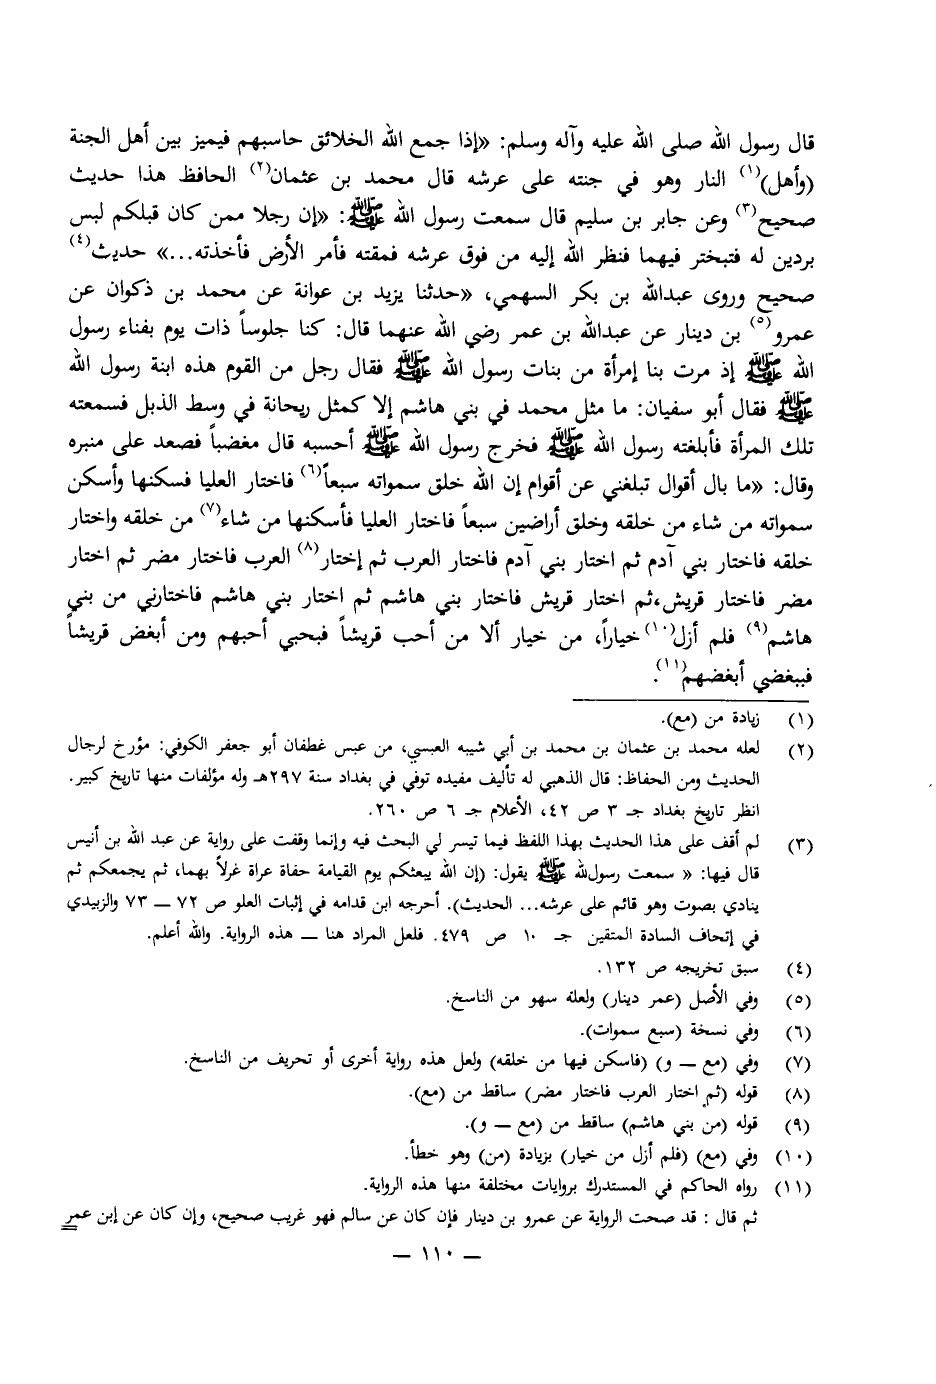 قال رسول الله صلى الله عليه وآله وسلم: «إذا جمع الله الخلائق حاسبهم فيميز بين أهل الجنة
(وأهل)(١) النار وهو في جنته على عرشه قال محمد بن عثمان(٢) الحافظ هذا حديث
صحيح(٣) وعن جابر بن سليم قال سمعت رسول الله ﷺ: «إن رجلا ممن كان قبلكم لبس
بردين له فتبختر فيهما فنظر الله إليه من فوق عرشه فمقته فأمر الأرض فأخذته...» حديث(٤)
صحيح وروى عبدالله بن بكر السهمي، «حدثنا يزيد بن عوانة عن محمد بن ذكوان عن
عمرو(٥) بن دينار عن عبدالله بن عمر رضي الله عنهما قال: كنا جلوساً ذات يوم بفناء رسول
الله ﷺ إذ مرت بنا إمرأة من بنات رسول الله ﷺ فقال رجل من القوم هذه ابنة رسول الله
ﷺ فقال أبو سفيان: ما مثل محمد في بني هاشم إلا كمثل ريحانة في وسط الذبل فسمعته
تلك المرأة فأبلغته رسول الله ﷺ فخرج رسول الله ﷺ أحسبه قال مغضباً فصعد على منبره
وقال: «ما بال أقوال تبلغني عن أقوام إن الله خلق سمواته سبعاً(٦) فاختار العليا فسكنها وأسكن
سمواته من شاء من خلقه وخلق أراضين سبعاً فاختار العليا فأسكنها من شاء(٧) من خلقه واختار
خلقه فاختار بني آدم ثم اختار بني آدم فاختار العرب ثم إختار(٨) العرب فاختار مضر ثم اختار
مضر فاختار قريش،ثم اختار قريش فاختار بني هاشم ثم اختار بني هاشم فاختارني من بني
هاشم(٩) فلم أزل(١٠) خياراً، من خيار ألا من أحب قريشاً فبحبي أحبهم ومن أبغض قريشاً
فببغضي أبغضهم(١١).
(١) زيادة من (مع).
(٢) لعله محمد بن عثمان بن محمد بن أبي شيبه العبسي، من عبس غطفان أبو جعفر الكوفي: مؤرخ لرجال
الحديث ومن الحفاظ: قال الذهبي له تأليف مفيده توفي في بغداد سنة ٢٩٧هـ وله مؤلفات منها تاريخ كبير.
انظر تاريخ بغداد جـ ٣ ص ٤٢، الأعلام جـ ٦ ص ٢٦٠.
(٣) لم أقف على هذا الحديث بهذا اللفظ فيما تيسر لي البحث فيه وإنما وقفت على رواية عن عبد الله بن أنيس
قال فيها: « سمعت رسولله ﷺ يقول: (إن الله يبعثكم يوم القيامة حفاة عراة غرلاً بهما، ثم يجمعكم ثم
ينادي بصوت وهو قائم على عرشه... الحديث). أحرجه ابن قدامه في إثبات العلو ص ٧٢ — ٧٣ والزبيدي
في إتحاف السادة المتقين جـ ١٠ ص ٤٧٩. فلعل المراد هنا — هذه الرواية. والله أعلم.
(٤) سبق تخريجه ص ١٣٢.
(٥) وفي الأصل (عمر دينار) ولعلة سهو من الناسخ.
(٦) وفي نسخة (سبع سموات).
(٧) وفي (مع — و) (فاسكن فيها من خلقه) ولعل هذه رواية أخرى أو تحريف من الناسخ.
(٨) قوله (ثم اختار العرب فاختار مضر) ساقط من (مع).
(٩) قوله (من بني هاشم) ساقط من (مع — و).
(١٠) وفي (مع) (فلم أزل من خيار) بزيادة (من) وهو خطأ.
(١١) رواه الحاكم في المستدرك بروايات مختلفة منها هذه الرواية.
ثم قال : قد صحت الرواية عن عمرو بن دينار فإن كان عن سالم فهو غريب صحيح، وإن كان عن إبن عمر
— ١١٠ —